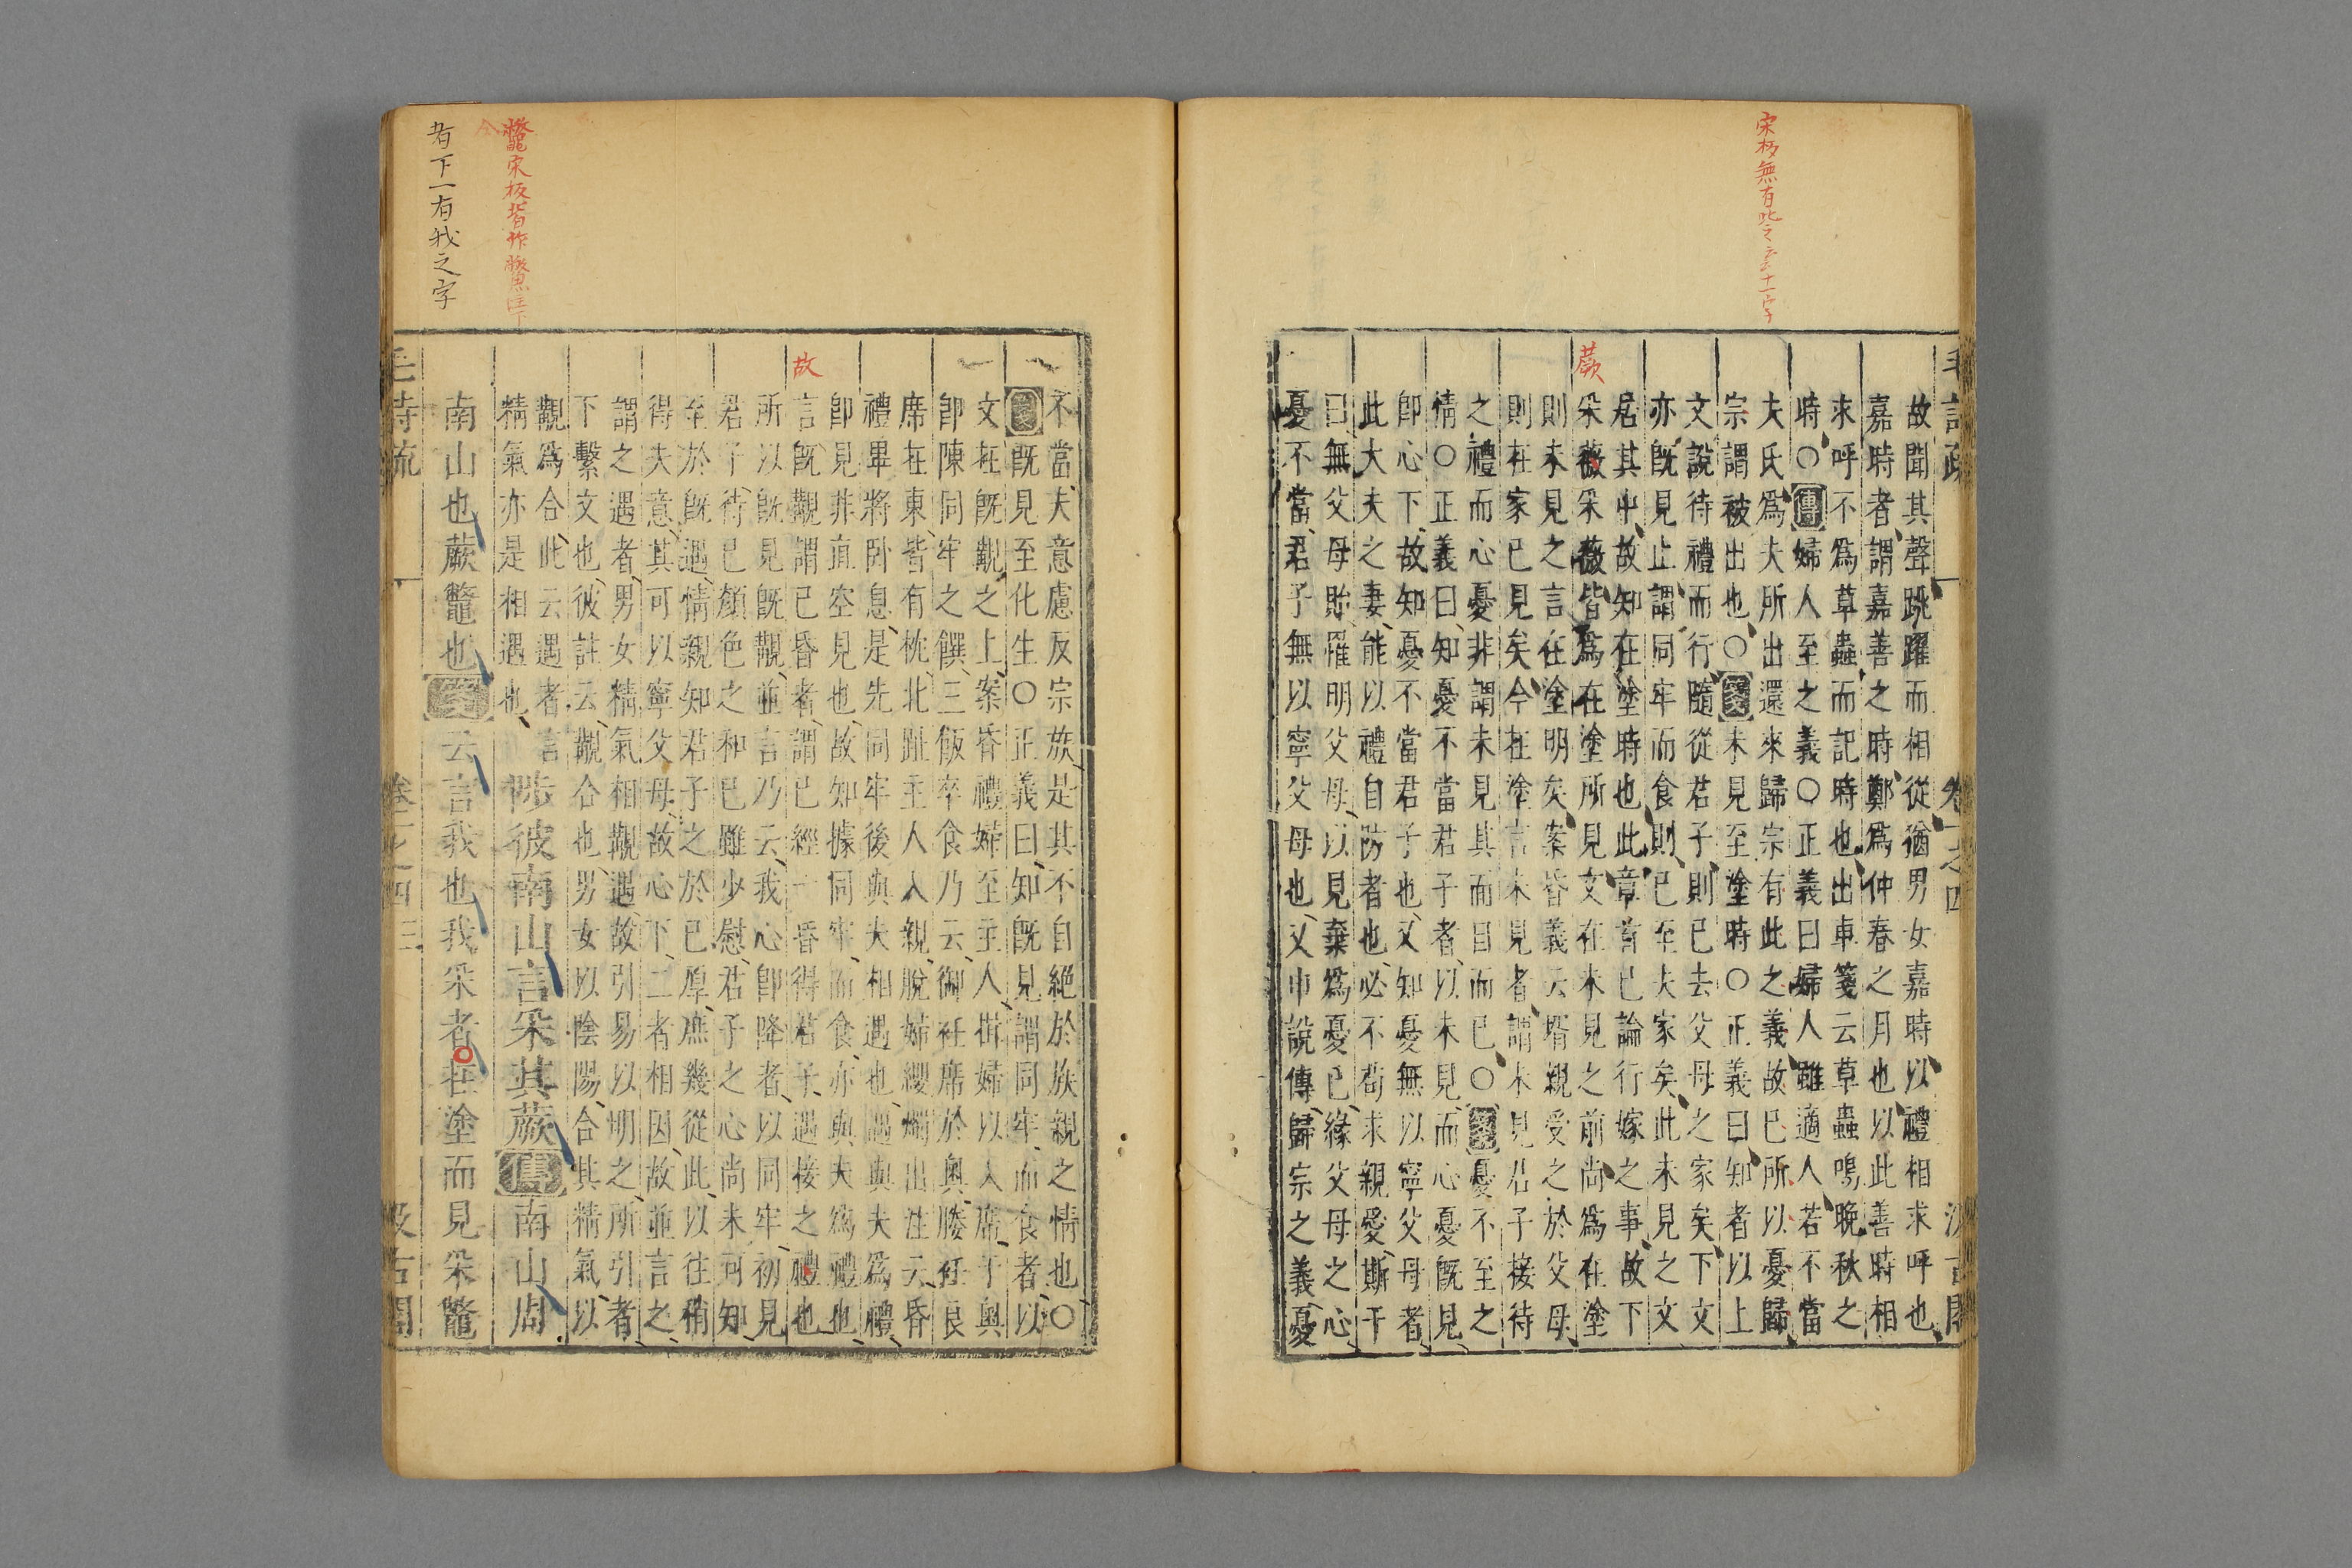 宋板無有此之義十一字
蕨
毛詩疏 卷一之四 汲古閣
故聞其聲跳躍而相從猶男女嘉時以禮相求呼也
嘉時者謂嘉善之時鄭爲仲春之月也以此善時相
求呼不爲草蟲而記時也出車箋云草蟲鳴晚秋之
時○傳婦人至之義○正義曰婦人雖適人若不當
夫氏爲夫所出還來歸宗有此之義故巳所以憂歸
宗謂被出也○箋未見至塗時○正義曰知者以上
文說待禮而行隨從君子則巳去父母之家矣下文
亦旣見止謂同牢而食則巳至夫家矣此未見之文
居其中故知在塗時也此章首巳論行嫁之事故下
采薇采薇皆爲在塗所見文在未見之前尚爲在塗
則未見之言在塗明矣案昏義云壻親受之於父母
則在家已見矣今在塗言未見者謂未見君子接待
之禮而心憂非謂未見其而目而巳○箋憂不至之
情○正義曰知憂不當君子者以未見而心憂旣見
卽心下故知憂不當君子也又知憂無以寧父母者
此大夫之妻能以禮自防者也必不苟求親愛斯干
曰無父母貽罹明父母以見棄爲憂已緣父母之心
憂不當君子無以寧父母也又巾說傳歸宗之義憂
故
不當夫意慮反宗族是其不自絕於族親之情也○
箋旣見至化生○正義曰知旣見謂同牢而食者以
文在旣覯之上案昏禮婦至主人揖婦以入席于奧
卽陳同牢之饌三飯卒食乃云御衽席於奧媵衽良
席在東皆有枕北趾主人入親脫婦纓燭出注云昏
禮畢將卧息是先同牢後與夫相遇也遇與夫爲禮
卽見非直空見也故知據同牢而食亦與夫爲禮也
言旣覯謂已昏者謂已經一昏得君子遇接之禮也
所以旣見旣覯並言乃云我心卽降者以同牢初見
君子待已顏色之和已雖少慰君子之心尚未可知
至於旣遇情親知君子之於已厚庶幾從此以往稍
得夫意其可以寧父母故心下二者相因故並言之
謂之遇者男女精氣相覯遇故引易以明之所引者
下繫文也彼註云覯合也男女以陰陽合其精氣以
觀爲合此云遇者言
精氣亦是相遇也
陟彼南山言采其蕨傳南山周
南山也蕨鼈也箋云言我也我采者在塗而見采鼈
毛詩疏 卷一之四 三 汲古閣
者下一有我之字